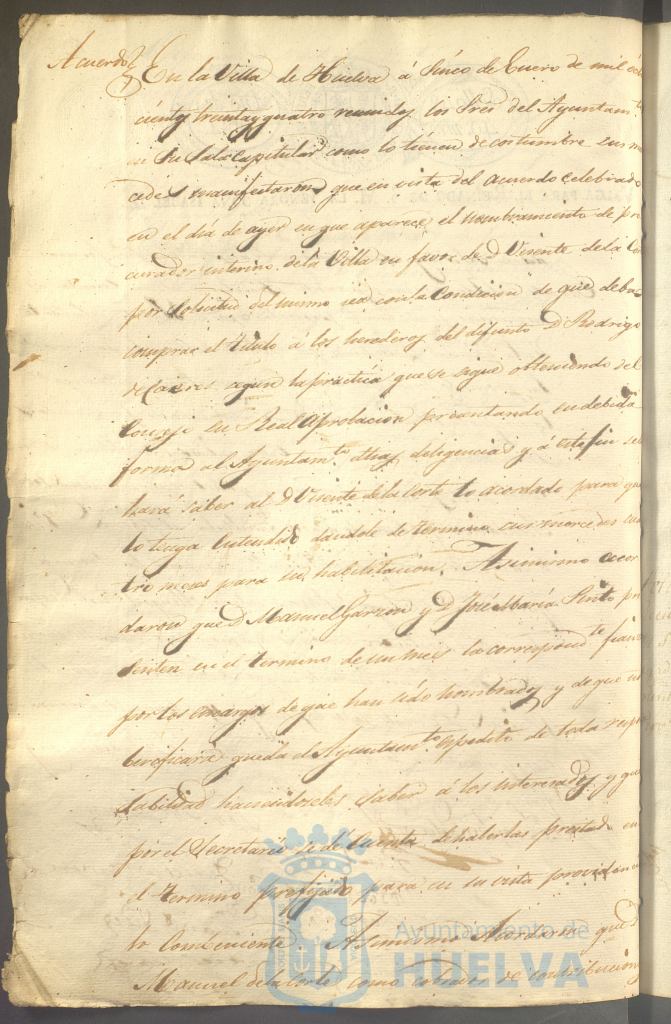 Acuerdo
En la Villa de Huelva á Sinco de Enero de mil och
cientos treintayquatro reunidos los Sres del Ayuntam.to
en Su Sala capitular como lo tienen de costumbre sus m
cedes manifestaron que en vista del acuerdo celebrado
en el dia de ayer en que aparece el nombramiento de pro
curador interino de la Villa en favor de D. Vicente de la Cor
por solicitud del mismo sea con la Condicion de que deba
comprar el titulo á los herederos del difunto D. Rodrigo
de segun la practica que se sigue obteniendo del
Consejo su Real aprobacion presentando en debida
forma al Ayuntam.to dhas diligencias y á este fin se
hará saber al D. Vicente de la Corte lo acordado para que
lo tenga entendido dandole de termino sus mercedes
tro meses para su habilitacion. Asimismo acor
daron que D. Manuel Garzon y D. José María Pinto pre
senten en el termino de un mes la correspond.te fianz
por los encargos de que han sido nombrados y de que no
berificará queda el Ayuntam.to espedito de toda respon
sabilidad haciendoseles saber á los interesados y que
por el Secretario se dé cuenta de haberlas prestado en
el termino prefijado para en su vista providencia
lo combeniente. Asimismo Acordaron que D.
Manuel de la Corte como cobrador de contribucion
Ayuntamiento de
HUELVA